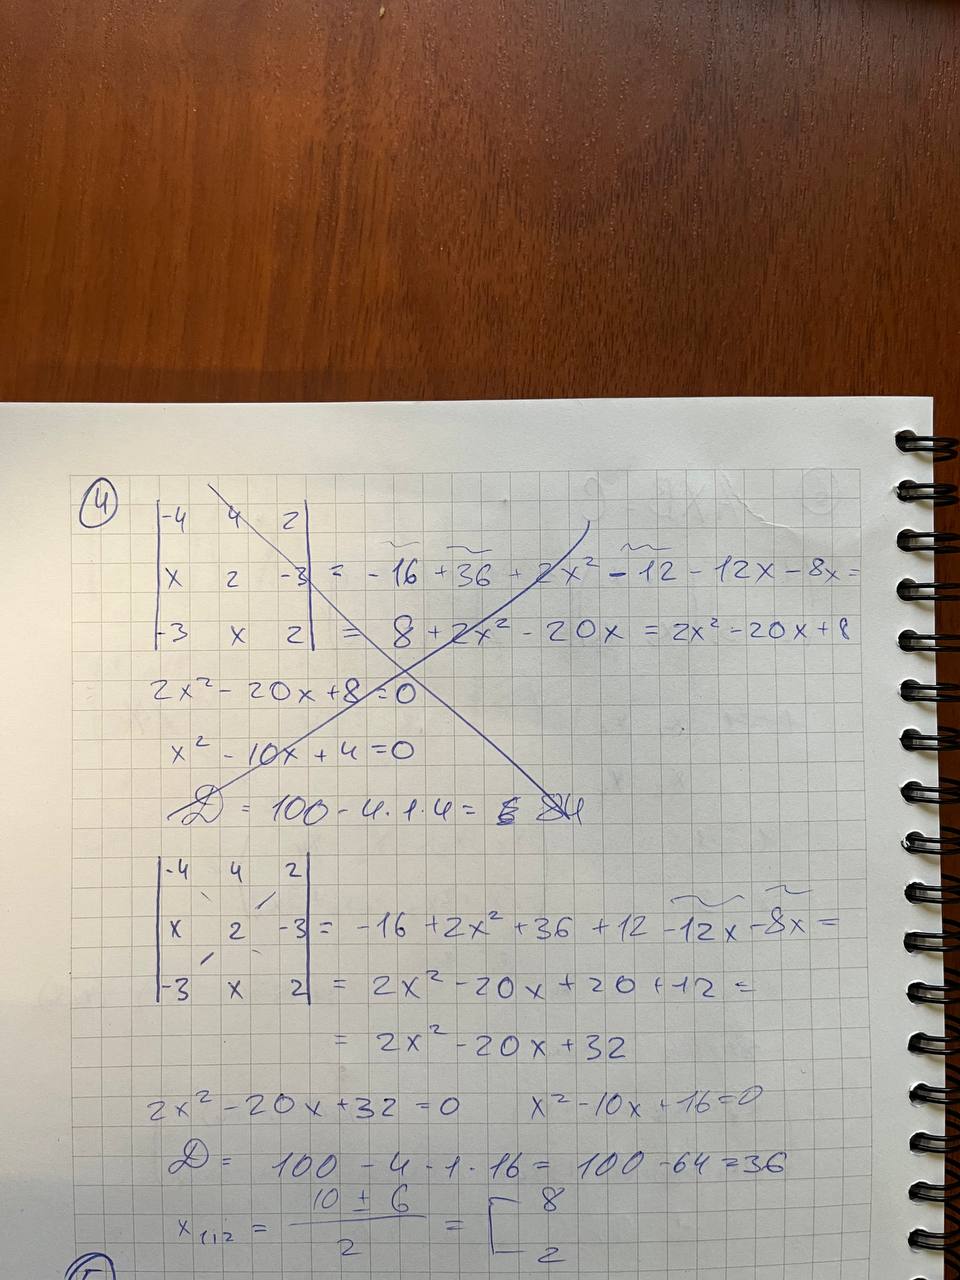 4
|-4 4 2|
|x 2 -3| = -16 + 36 + 2x² - 12 - 12x - 8x =
|-3 x 2| = 8 + 2x² - 20x = 2x² - 20x + 8
2x² - 20x + 8 = 0
x² - 10x + 4 = 0
D = 100 - 4 · 1 · 4 = 84
|-4 4 2|
|x 2 -3| = -16 + 2x² + 36 + 12 - 12x - 8x =
|-3 x 2| = 2x² - 20x + 20 + 12 =
= 2x² - 20x + 32
2x² - 20x + 32 = 0 x² - 10x + 16 = 0
D = 100 - 4 · 1 · 16 = 100 - 64 = 36
x₁,₂ = (10 ± 6) / 2 = [ 8
2